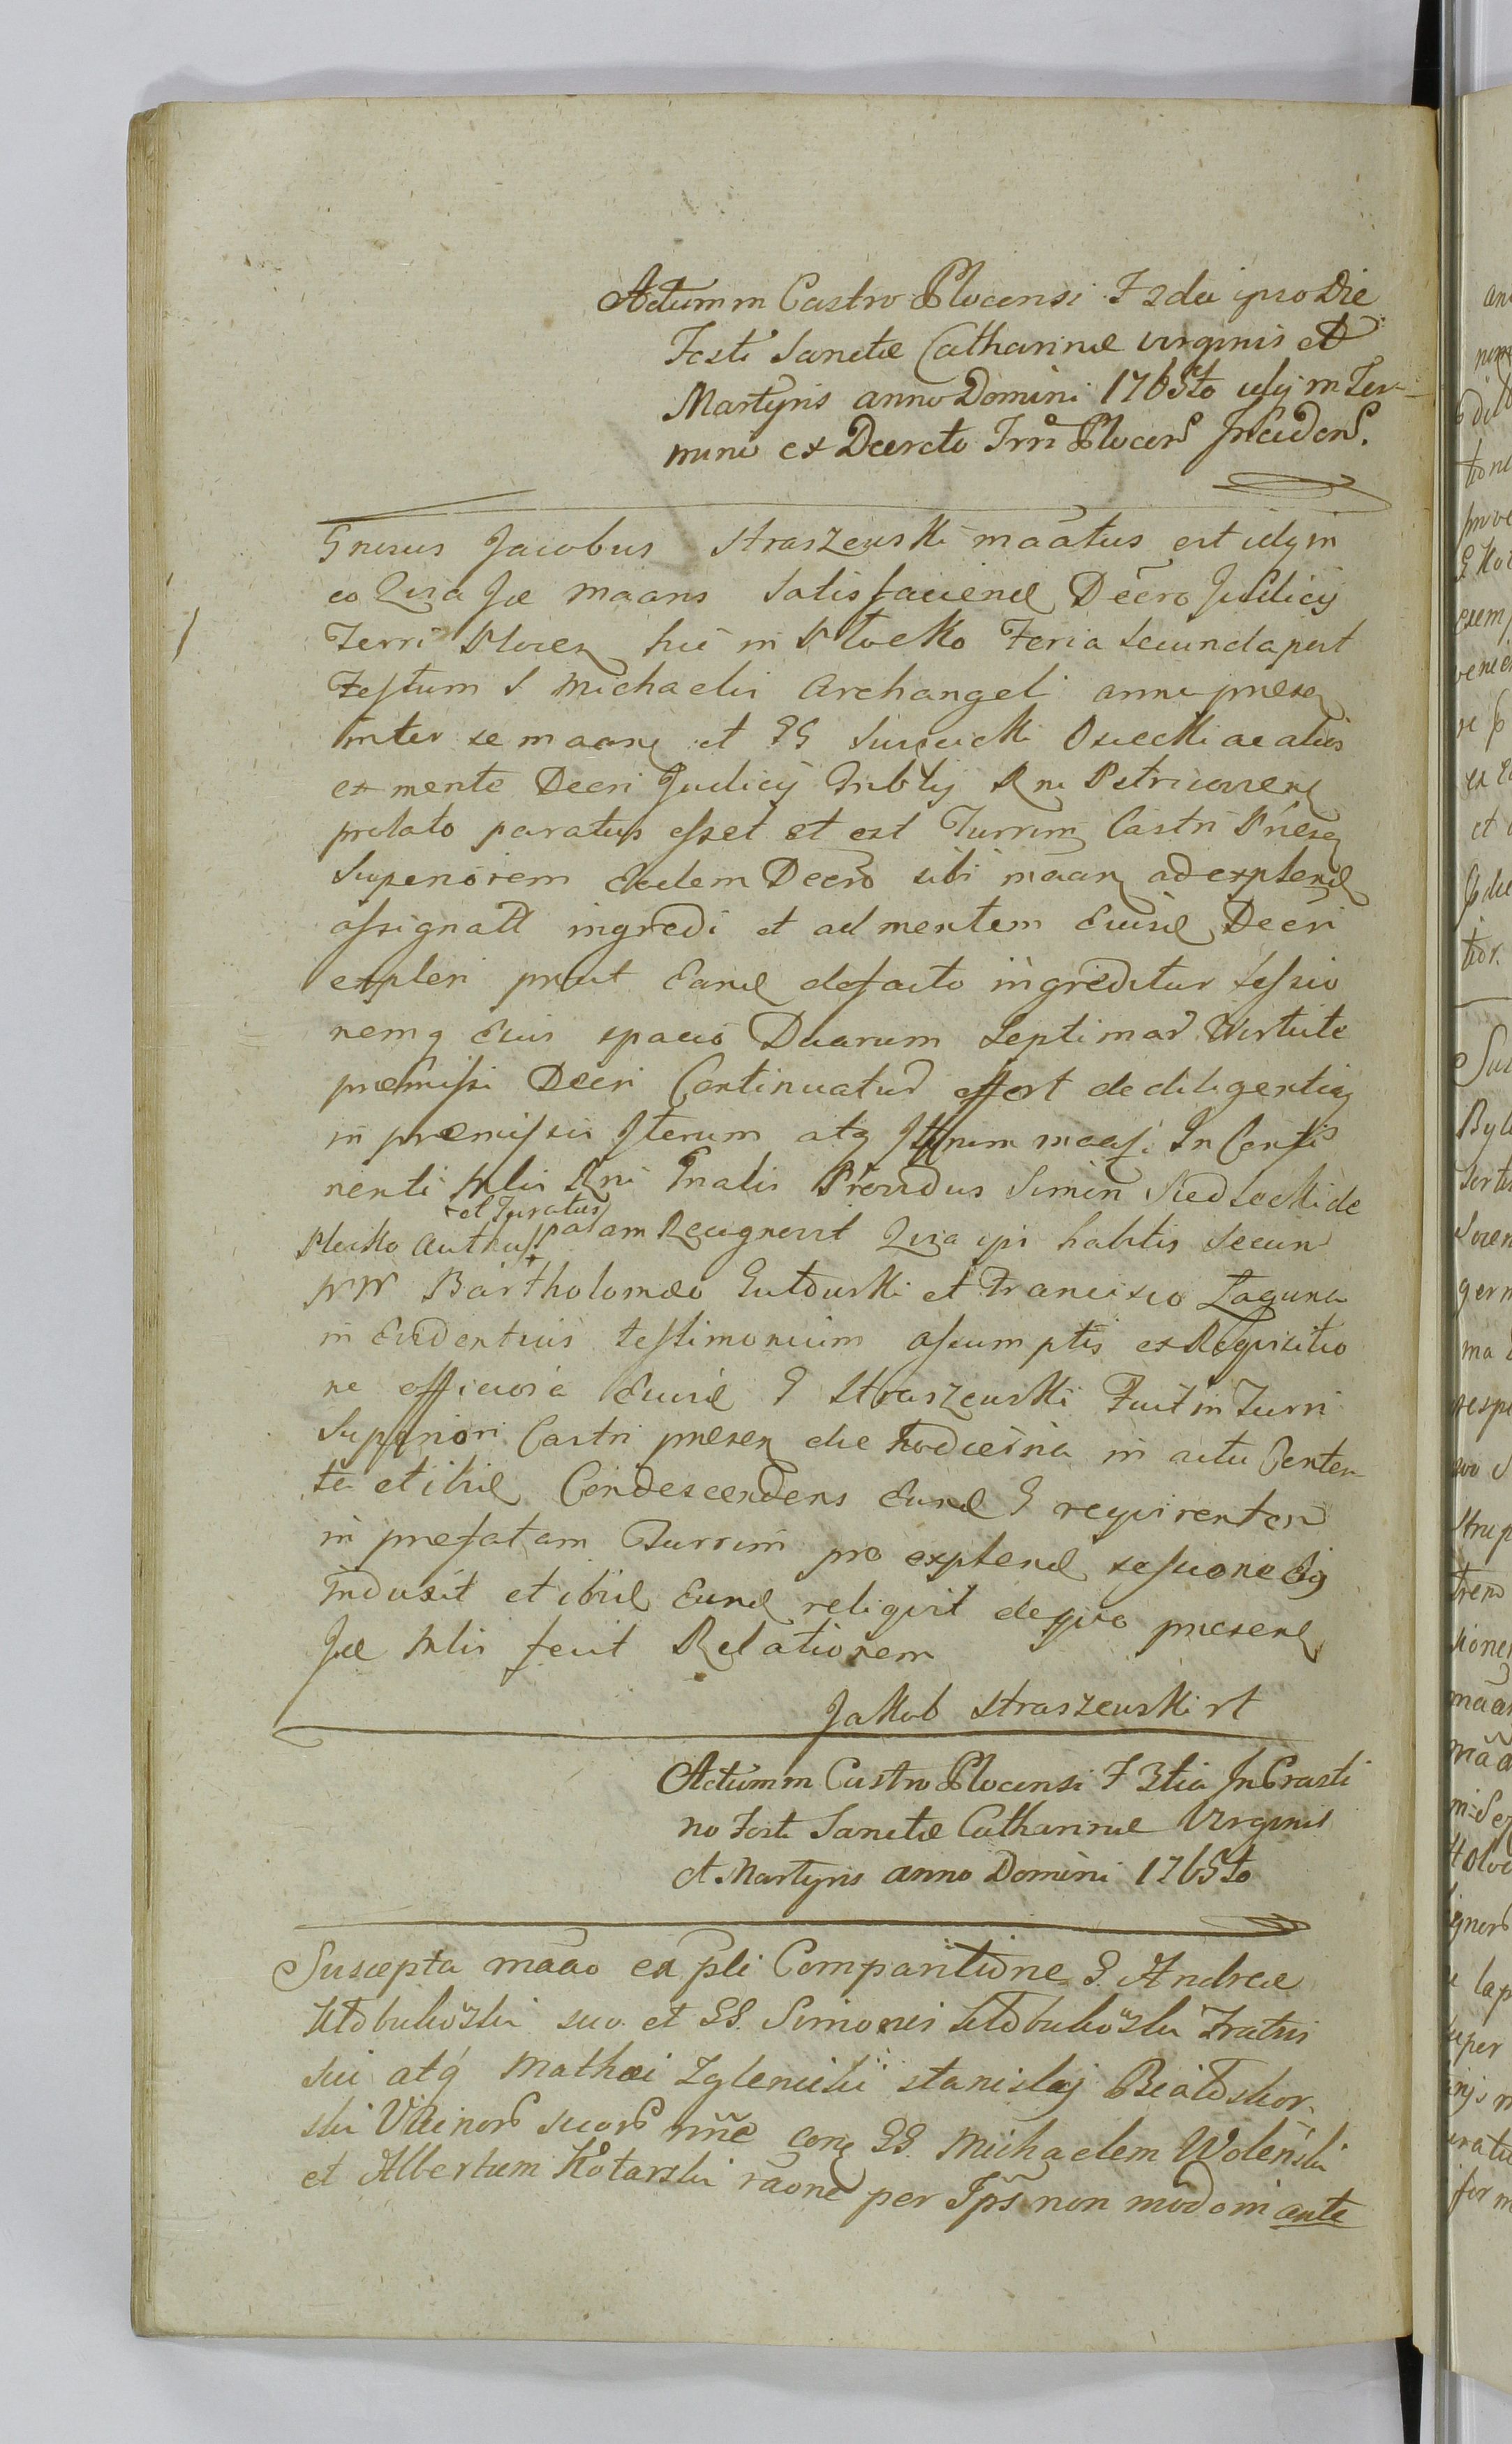 Actum in Castro Plocensi F 2da ipso Die
Festi Sanctæ Catharinæ virginis et
Martyris anno Domini 1765to idqz in Ter-
mino ex Decreto Trri Plocen Inciden.
Gnosus Jacobus Straszewski maatus est idqz in
eo Quia Jse maans Satisfaciend Decro Judicij
Terri Plocen hic in Plocko Feria Secunda post
Festum S Michaelis Archangeli anni presen
inter se maane et GG Osiecki ac alios
ex mente Decri Judicij Tribtlij Rni Petricovien
prolato paratus esset et est Turrim Castri Presen
Superiorem Eodem Decro sibi maan ad explend
assignatt ingredi et ad mentem Eiusd Decri
expleri prout Eand defacto ingreditur Sessio
nemq Eius spacio Duarum Septimar Virtute
præmissi Decri Continuatur offert de diligentia
in præmissis Iterum atq Itterum maasi In Conti
nenti Mlis Rni Gnalis Providus Simon Siedlecki de
et Juratus
Plocko Authus palam Recognovit Quia ipe habitis Secum
NN Bartholomæo Gutowski et Francisco Laguna
in Evidentius testimonium assumptis ex Requisitio
ne officiosa Eiusd G Straszewski Fuit in Turri
Superiori Castri presen die hodierna in actu Conten-
ta et ibid Condescendens Eund G requirenten
in prefatam Turrim pro explend sessione Eiq
Induxit et ibid Eund reliquit de quo presend
Jse Mlis fecit Relationem
Jakob Straszewski rt
Actum in Castro Plocensi F 3tia In Crasti
no Festi Sanctæ Catharinæ Virginis
et Martyris anno Domini 1765to
Suscepta maao ex psli Comparitione G. Andreæ
Kłobukowski suo et GG. Simonis Kłobukowski Fratris
sui atq Mathæi Zglenicki Stanislaj Białoskor-
ski Vicinor suor nne cong GG. Michaelem Wolenski
et Albertum Kotarski raone per Ips non modo in ante